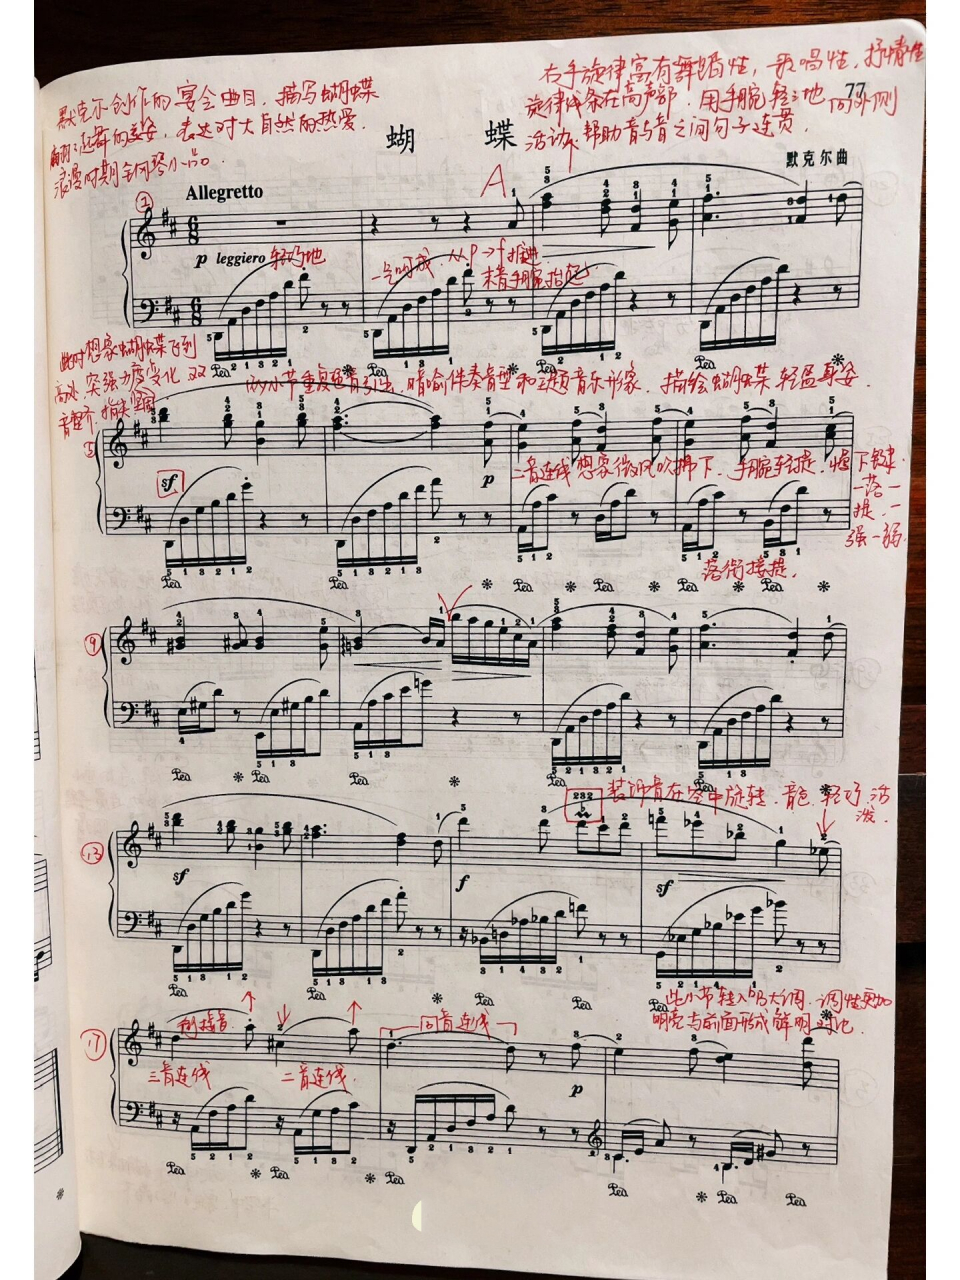 77
默克尔创作的宴会曲目. 描写蝴蝶
翩翩起舞的美姿, 表达对大自然的热爱.
浪漫时期钢琴小品.
右手旋律富有舞蹈性, 歌唱性, 抒情性
旋律线条在高声部. 用手腕轻轻地向外侧
活动, 帮助音与音之间句子连贯.
蝴 蝶
默克尔曲
①
Allegretto
A
p leggiero 轻巧地
一气呵成 从p→f推进
末音手腕抬起
此时想象蝴蝶飞到
高处, 突强力度变化 双
音整齐. 指尖坚固
四小节重复
暗喻伴奏音型和主题音乐形象. 描绘蝴蝶轻盈舞姿.
⑤
sf
p
二音连线想象微风吹拂下. 手腕轻提, 慢下键.
一落一
提. 一
强一弱.
落衔接提.
⑨
装饰音在空中旋转. 音色轻巧. 活
泼.
232
⑬
sf
f
sf
此小节转入bB大调. 调性更加
明亮与前面形成鲜明对比
⑰
三音连线
二音连线.
四音连线
p